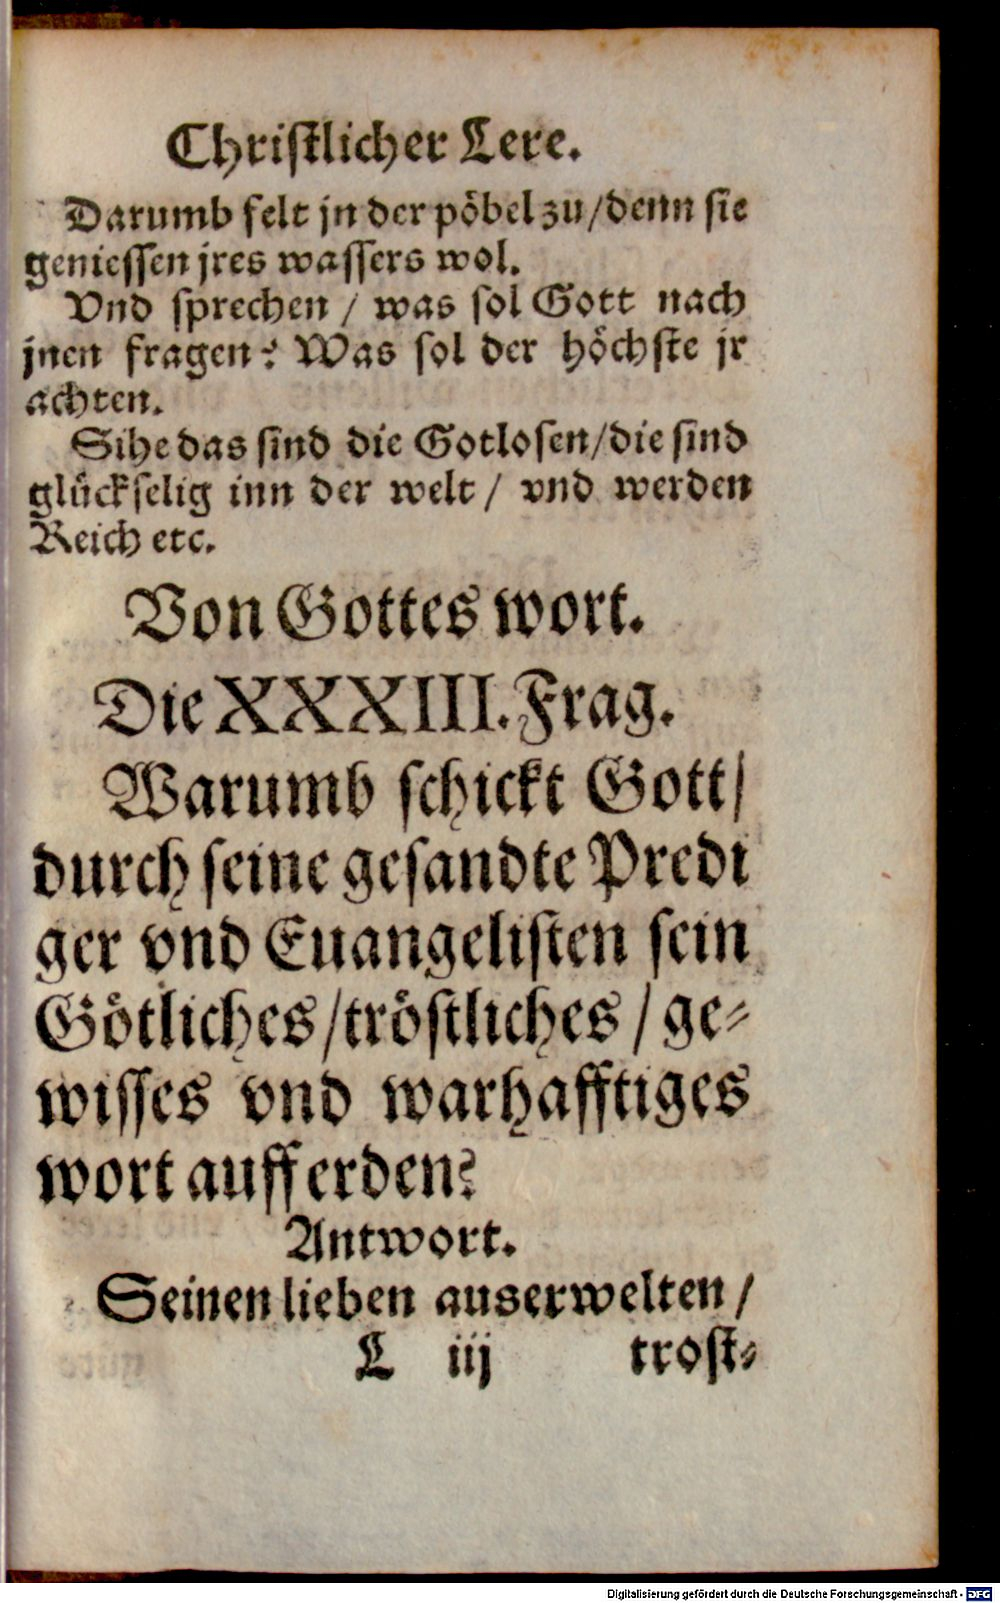 Christlicher Lere.
Darumb felt jn der pöbel zu/denn sie
geniessen jres wassers wol.
Vnd sprechen / was sol Gott nach
jnen fragen? Was sol der höchste jr
achten.
Sihe das sind die Gotlosen/die sind
glückselig inn der welt / vnd werden
Reich etc.
Von Gottes wort.
Die XXXIII. Frag.
Warumb schickt Gott/
durch seine gesandte Predi
ger vnd Euangelisten sein
Götliches/tröstliches / ge-
wisses vnd warhafftiges
wort auff erden?
Antwort.
Seinen lieben auserwelten /
L iij trost-
Digitalisierung gefördert durch die Deutsche Forschungsgemeinschaft - DFG